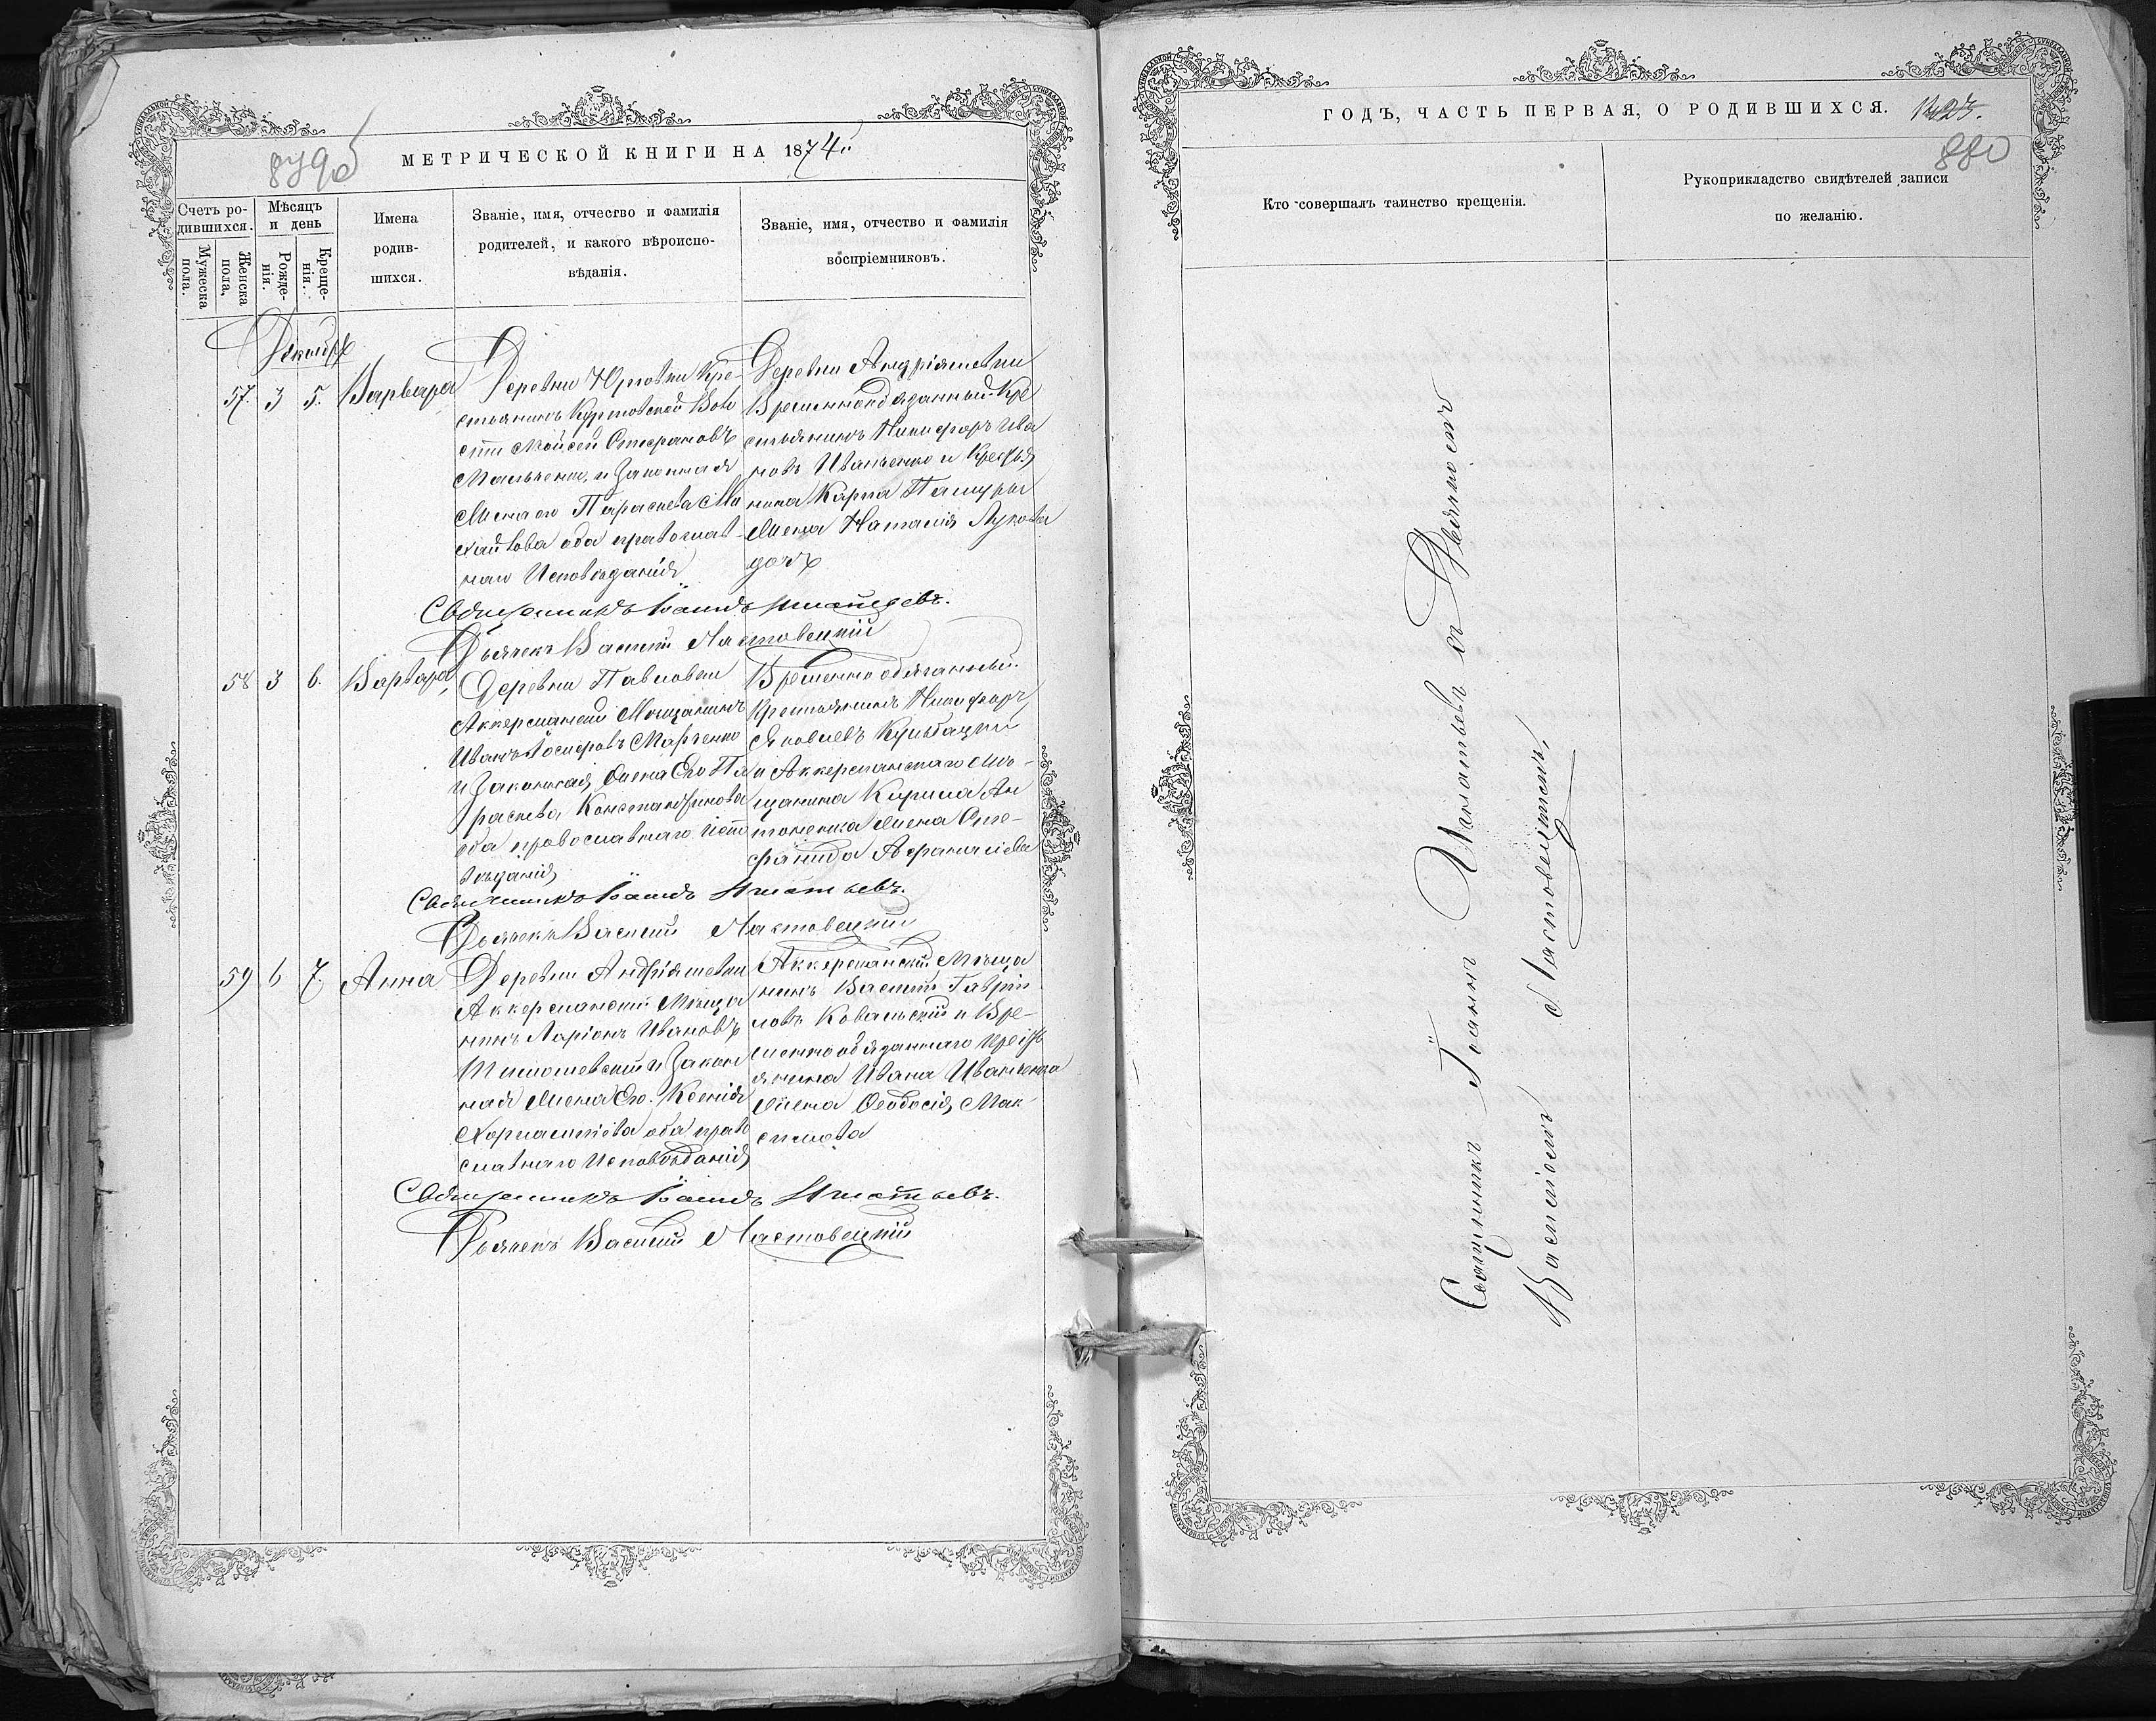 879об
МЕТРИЧЕСКОЙ КНИГИ НА 1874й
Счетъ ро-
дившихся.
Мужеска
пола.
Женска
пола.
Мѣсяцъ
и день
Рожде-
нія.
Креще-
нія.
Имена
родив-
шихся.
Званіе, имя, отчество и фамилія
родителей, и какого вѣроиспо-
вѣданія.
Званіе, имя, отчество и фамилія
воспріемниковъ.
Декабрь
57. 3 5. Варвара
Деревни Юрговки Кре-
стьянинъ Курговской Воло
сти Мойсей Стефановъ
и Законная
Жена его Параскева Ми
хайлова оба православ-
наго Исповѣданія
Деревни Андріяшевки
Временнообязанный Кре
стьянинъ Никифоръ Ива
новъ Иванченко и Крестья
нина Карпа
Жена Наталія Лукова
дочь
Священникъ Іоаннъ Игнатьевъ.
Дьячекъ Василій Ластовецкій
58 3 6. Варвара
Деревни Павловки
Аккерманскій Мещанинъ
Иванъ Іосифовъ Марченко
и Законная Жена Его Па
раскева Константинова
оба православнаго испо
вѣданія
Временно обязанный
Крестьянинъ Никифоръ
Яковлевъ Кульбацкій
и Аккерманскаго Мѣ-
щанина Кирила Ан
тоненка Жена Сте-
фанида Афанасіева
Священникъ Іоаннъ Игнатьевъ.
Дьячекъ Василій Ластовецкій
59 6 7. Анна
Деревни Андріяшевки
Аккерманскій Мѣща
нинъ Ларіонъ Ивановъ
и Закон
ная Жена Его Ксенія
оба право
славнаго Исповѣданія
Аккерманскій Мѣща
нинъ Василій Гаврі
ловъ Ковальскій и Вре-
менно обязаннаго Кресть
янина Ивана Иванченка
Жена Феодосія Мак-
симова
Священникъ Іоаннъ Игнатьевъ.
Дьячекъ Василій Ластовецкій
ГОДЪ, ЧАСТЬ ПЕРВАЯ, О РОДИВШИХСЯ.
880
Кто совершалъ таинство крещенія.
Рукоприкладство свидѣтелей записи
по желанію.
Священникъ Іоаннъ Игнатьевъ съ Дьячкомъ
Василіемъ Ластовецкимъ.